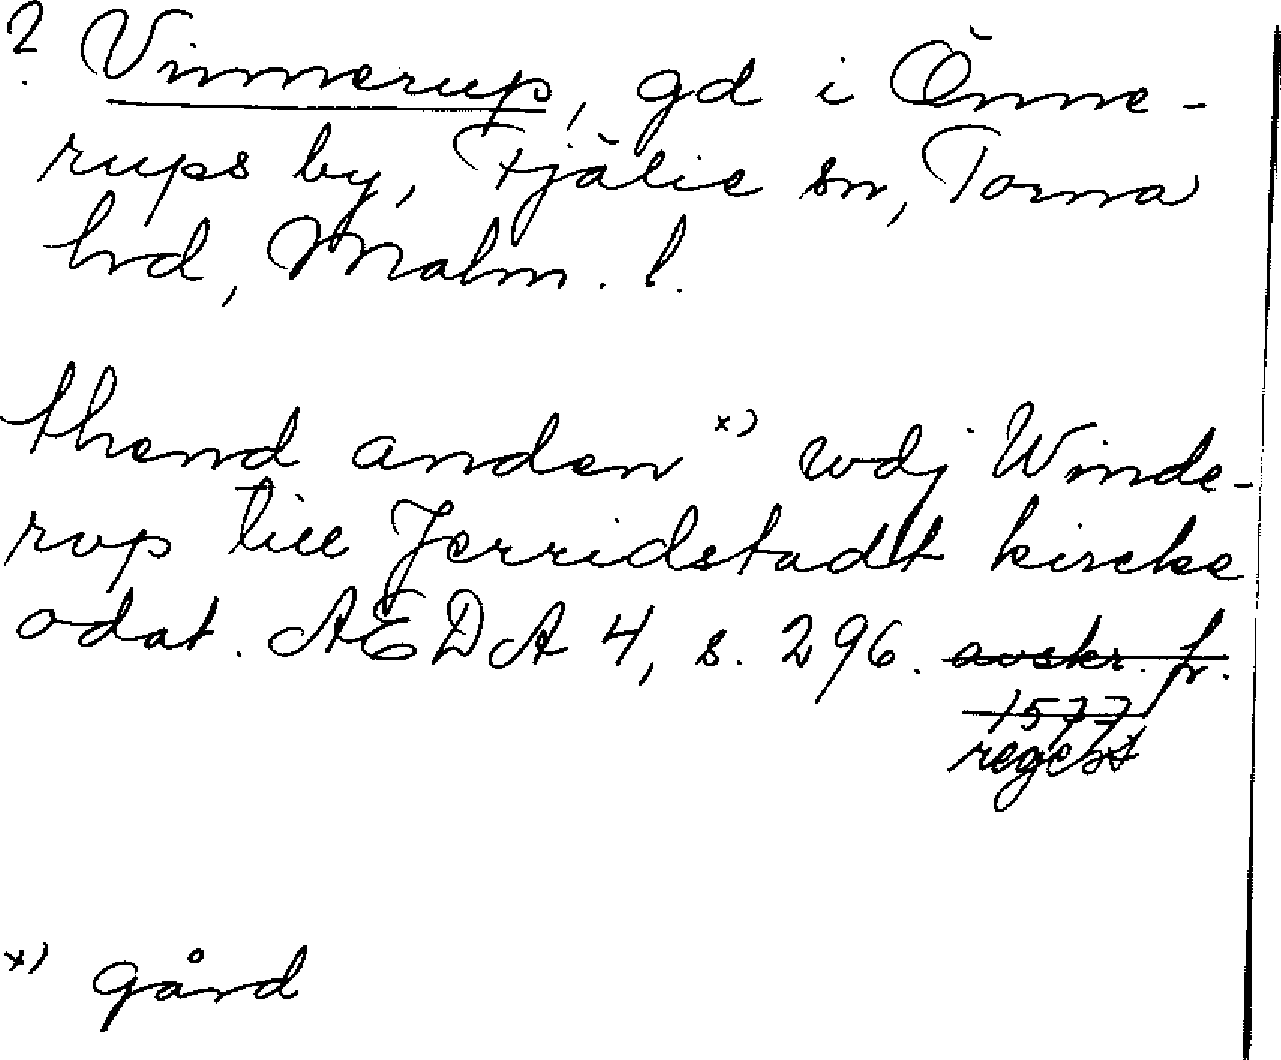 ? Vinnerup, gd i Önne-
rups by, Fjälie sn, Torna
hd, Malm. l.
thend anden x) wdj Winde-
rop till Jerridstadt kircke
odat. AEDA 4, s. 296. avskr. fr.
1577
regest
x) gård